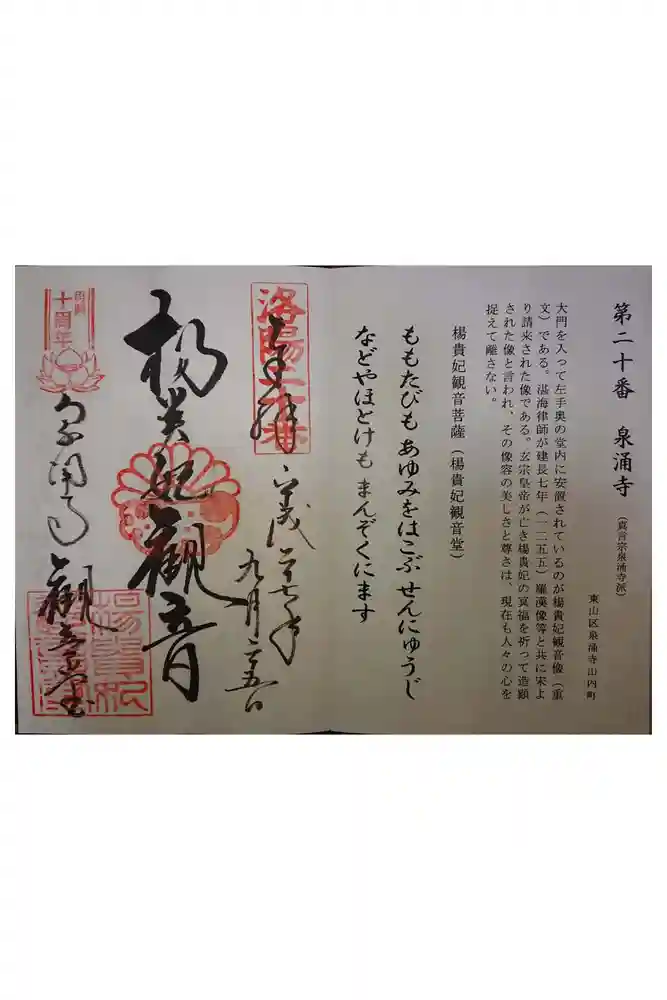 第二十番　泉涌寺
(真言宗泉涌寺派)
東山区泉涌寺山内町
大門を入って左手奥の堂内に安置されているのが楊貴妃観音像（重
文）である。湛海律師が建長七年（一二五五）羅漢像等と共に宋よ
り請来された像である。玄宗皇帝が亡き楊貴妃の冥福を祈って造顕
された像と言われ、その像容の美しさと尊さは、現在も人々の心を
捉えて離さない。
楊貴妃観音菩薩（楊貴妃観音堂）
ももたびも あゆみをはこぶ せんにゅうじ
などやほとけも まんぞくにます
洛陽二十番
奉拝
平成二十七年
九月二十五日
楊貴妃観音
十周年
泉涌寺
観音堂
楊貴妃